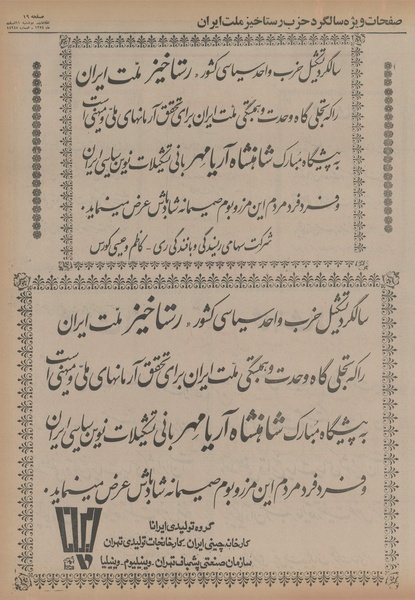 صفحات ویژه سالگرد حزب رستاخیز ملت ایران
صفحه ۱۹
سالگرد تشکیل حزب واحد سیاسی کشور، رستاخیز ملت ایران
را که تجلی گاه وحدت و همبستگی ملت ایران برای تحقق آرمانهای ملی و میهنی است
به پیشگاه مبارک شاهنشاه آریامهر بانی تشکیلات نوین سیاسی ایران
و فرد فرد مردم این مرز و بوم صمیمانه شادباش عرض مینماید.
شرکت سهامی ریسندگی و بافندگی ری - کاظم و عیسی کورس
سالگرد تشکیل حزب واحد سیاسی کشور، رستاخیز ملت ایران
را که تجلی گاه وحدت و همبستگی ملت ایران برای تحقق آرمانهای ملی و میهنی است
به پیشگاه مبارک شاهنشاه آریامهر بانی تشکیلات نوین سیاسی ایران
و فرد فرد مردم این مرز و بوم صمیمانه شادباش عرض مینماید.
گروه تولیدی ایرانا
کارخانه چینی ایران. کارخانجات تولیدی تهران
سازمان صنعتی پشمباف تهران. وینیلیوم. وینیلیا